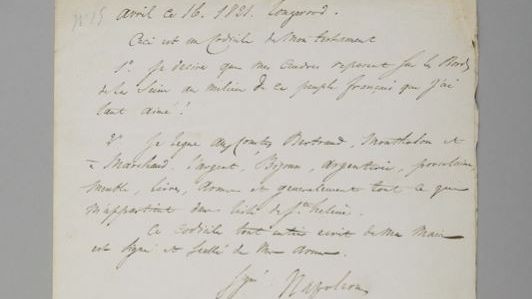 n° 15
avril ce 16. 1821. Longwood.
Ceci est un Codicile de Mon testament
1°. Je désire que mes Cendres reposent sur les Bords
de la Seine au milieu de ce peuple français que j'ai
tant aimé!
2° Je legue aux Comtes Bertrand, Montholon et
a Marchand, l'argent, Bijoux, argenterie, porcelaine
meubles, livres, armes et generalement tout ce que
m'appartient dans l'isle de Ste helene.
Ce Codicile tout entier ecrit de Ma Main
est signé et scellé de Mes armes.
Signé Napoleon